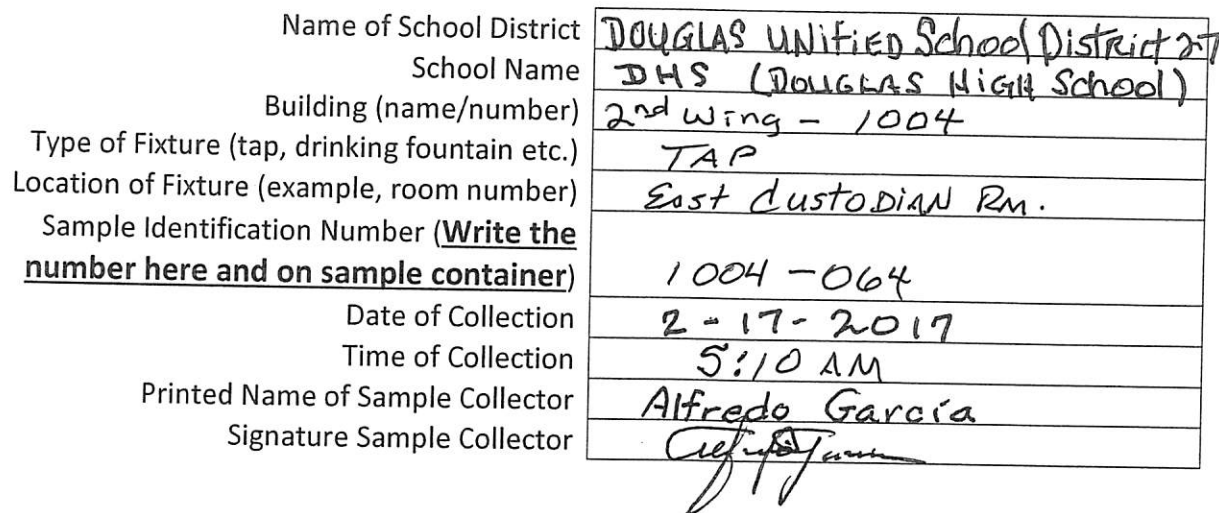 Name of School District DOUGLAS UNiFiED School DistRict 27
School Name DHS (DOUGLAS HiGH School)
Building (name/number) 2nd Wing - 1004
Type of Fixture (tap, drinking fountain etc.) TAP
Location of Fixture (example, room number) East CustoDiAN Rm.
Sample Identification Number (Write the
number here and on sample container) 1004-064
Date of Collection 2-17-2017
Time of Collection 5:10 AM
Printed Name of Sample Collector Alfredo García
Signature Sample Collector